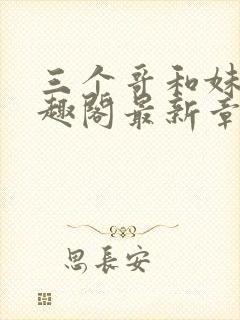 三个哥和妹
趣阁最新章
思長安